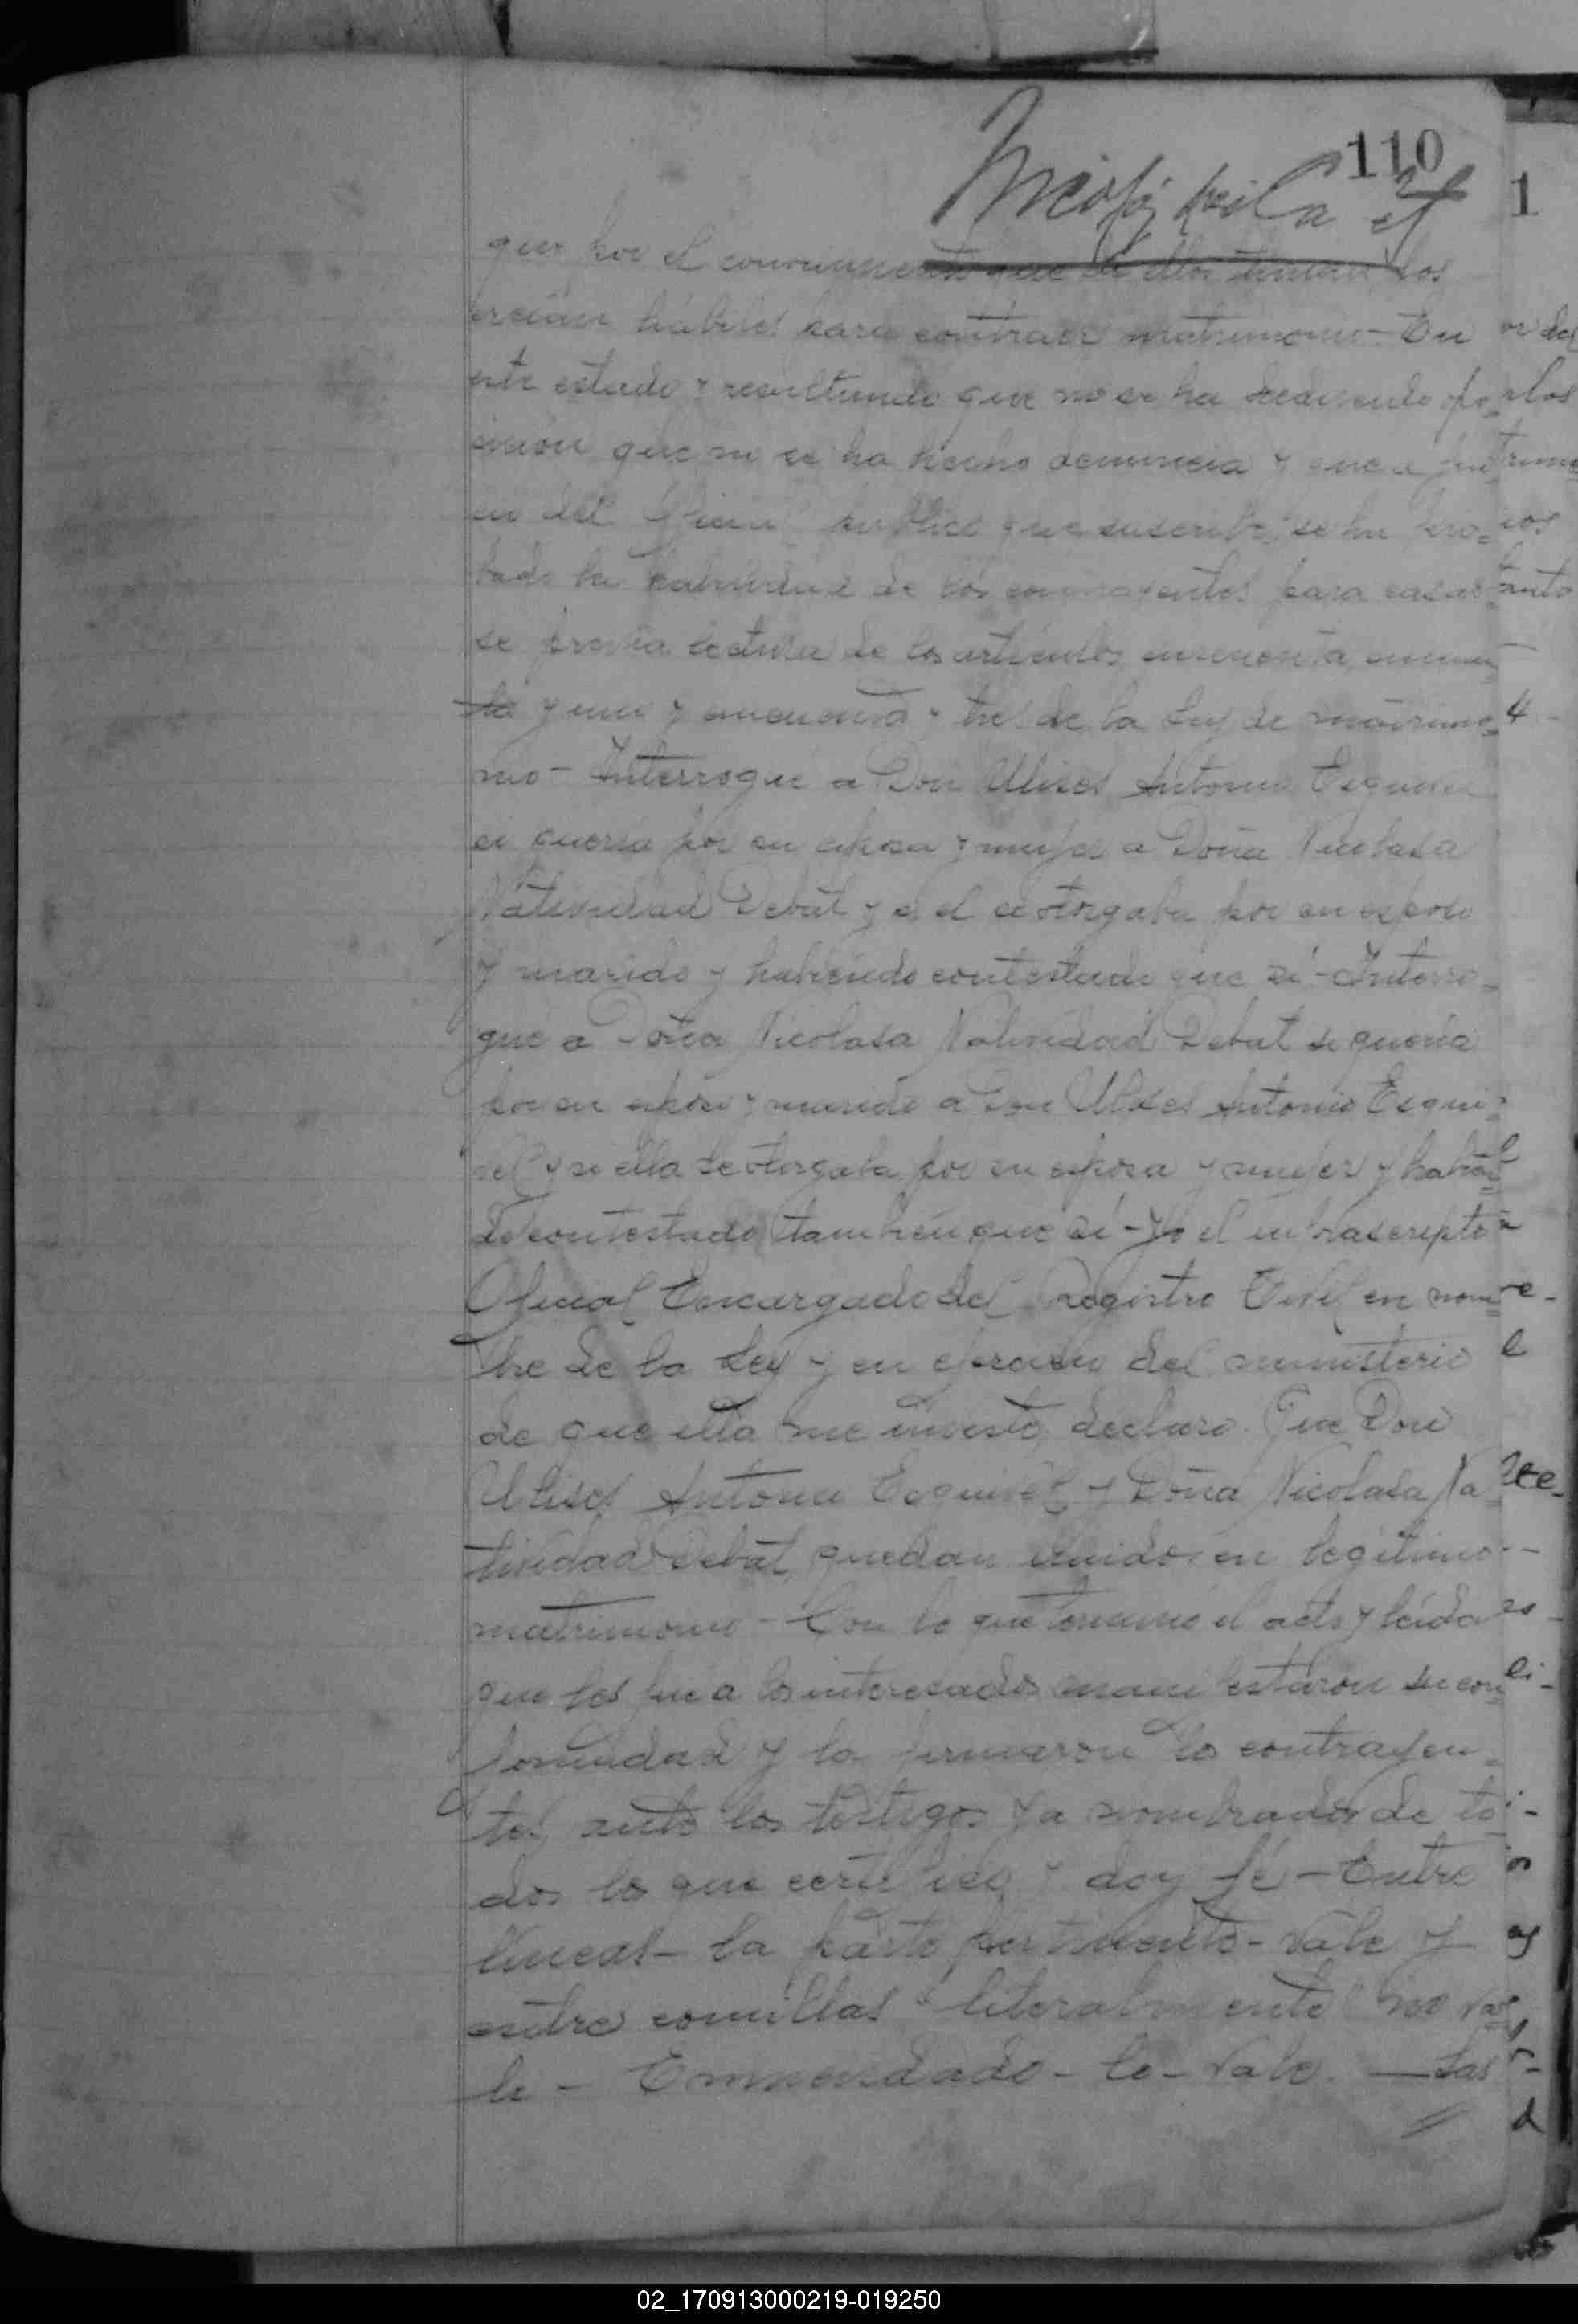 110
1
que por el conocimiento que de ellos tenían los
creían hábiles para contraer matrimonio - En
este estado y resultando que no se ha deducido opo-
sición que ni se ha hecho denuncia y que a jui-
cio del Oficial público que suscribe, se ha pro-
bado la habilidad de los contrayentes para casar-
se previa lectura de los artículos cincuenta, cincuen-
ta y uno y cincuenta y tres de la Ley de matrimo-
nio - Interrogué a Don Ulises Antonio Esquivel
si quería por su esposa y mujer a Doña Nicolasa
Natividad Debat y si el se otorgaba por su esposo
y marido y habiendo contestado que sí - Interro-
gué a Doña Nicolasa Natividad Debat si quería
por su esposo y marido a Don Ulises Antonio Esqui-
vel y si ella se otorgaba por su esposa y mujer y habien-
do contestado también que sí - Yo el infrascripto
Oficial Encargado del Registro Civil en nom-
bre de la Ley y en ejercicio del ministerio
de que ella me inviste, declaro. Que Don
Ulises Antonio Esquivel y Doña Nicolasa Na-
tividad Debat, quedan unidos en legítimo
matrimonio - Con lo que terminó el acto y leída
que les fue a los interesados manifestaron su con-
formidad y la firmaron los contrayen-
tes, ante los testigos ya nombrados de to-
dos lo que certifico y doy fé - Entre
líneas - la parte pertinente - Vale y
entre comillas "literalmente" no va-
le - Enmendado - lo - Vale. - Las
02_170913000219-019250